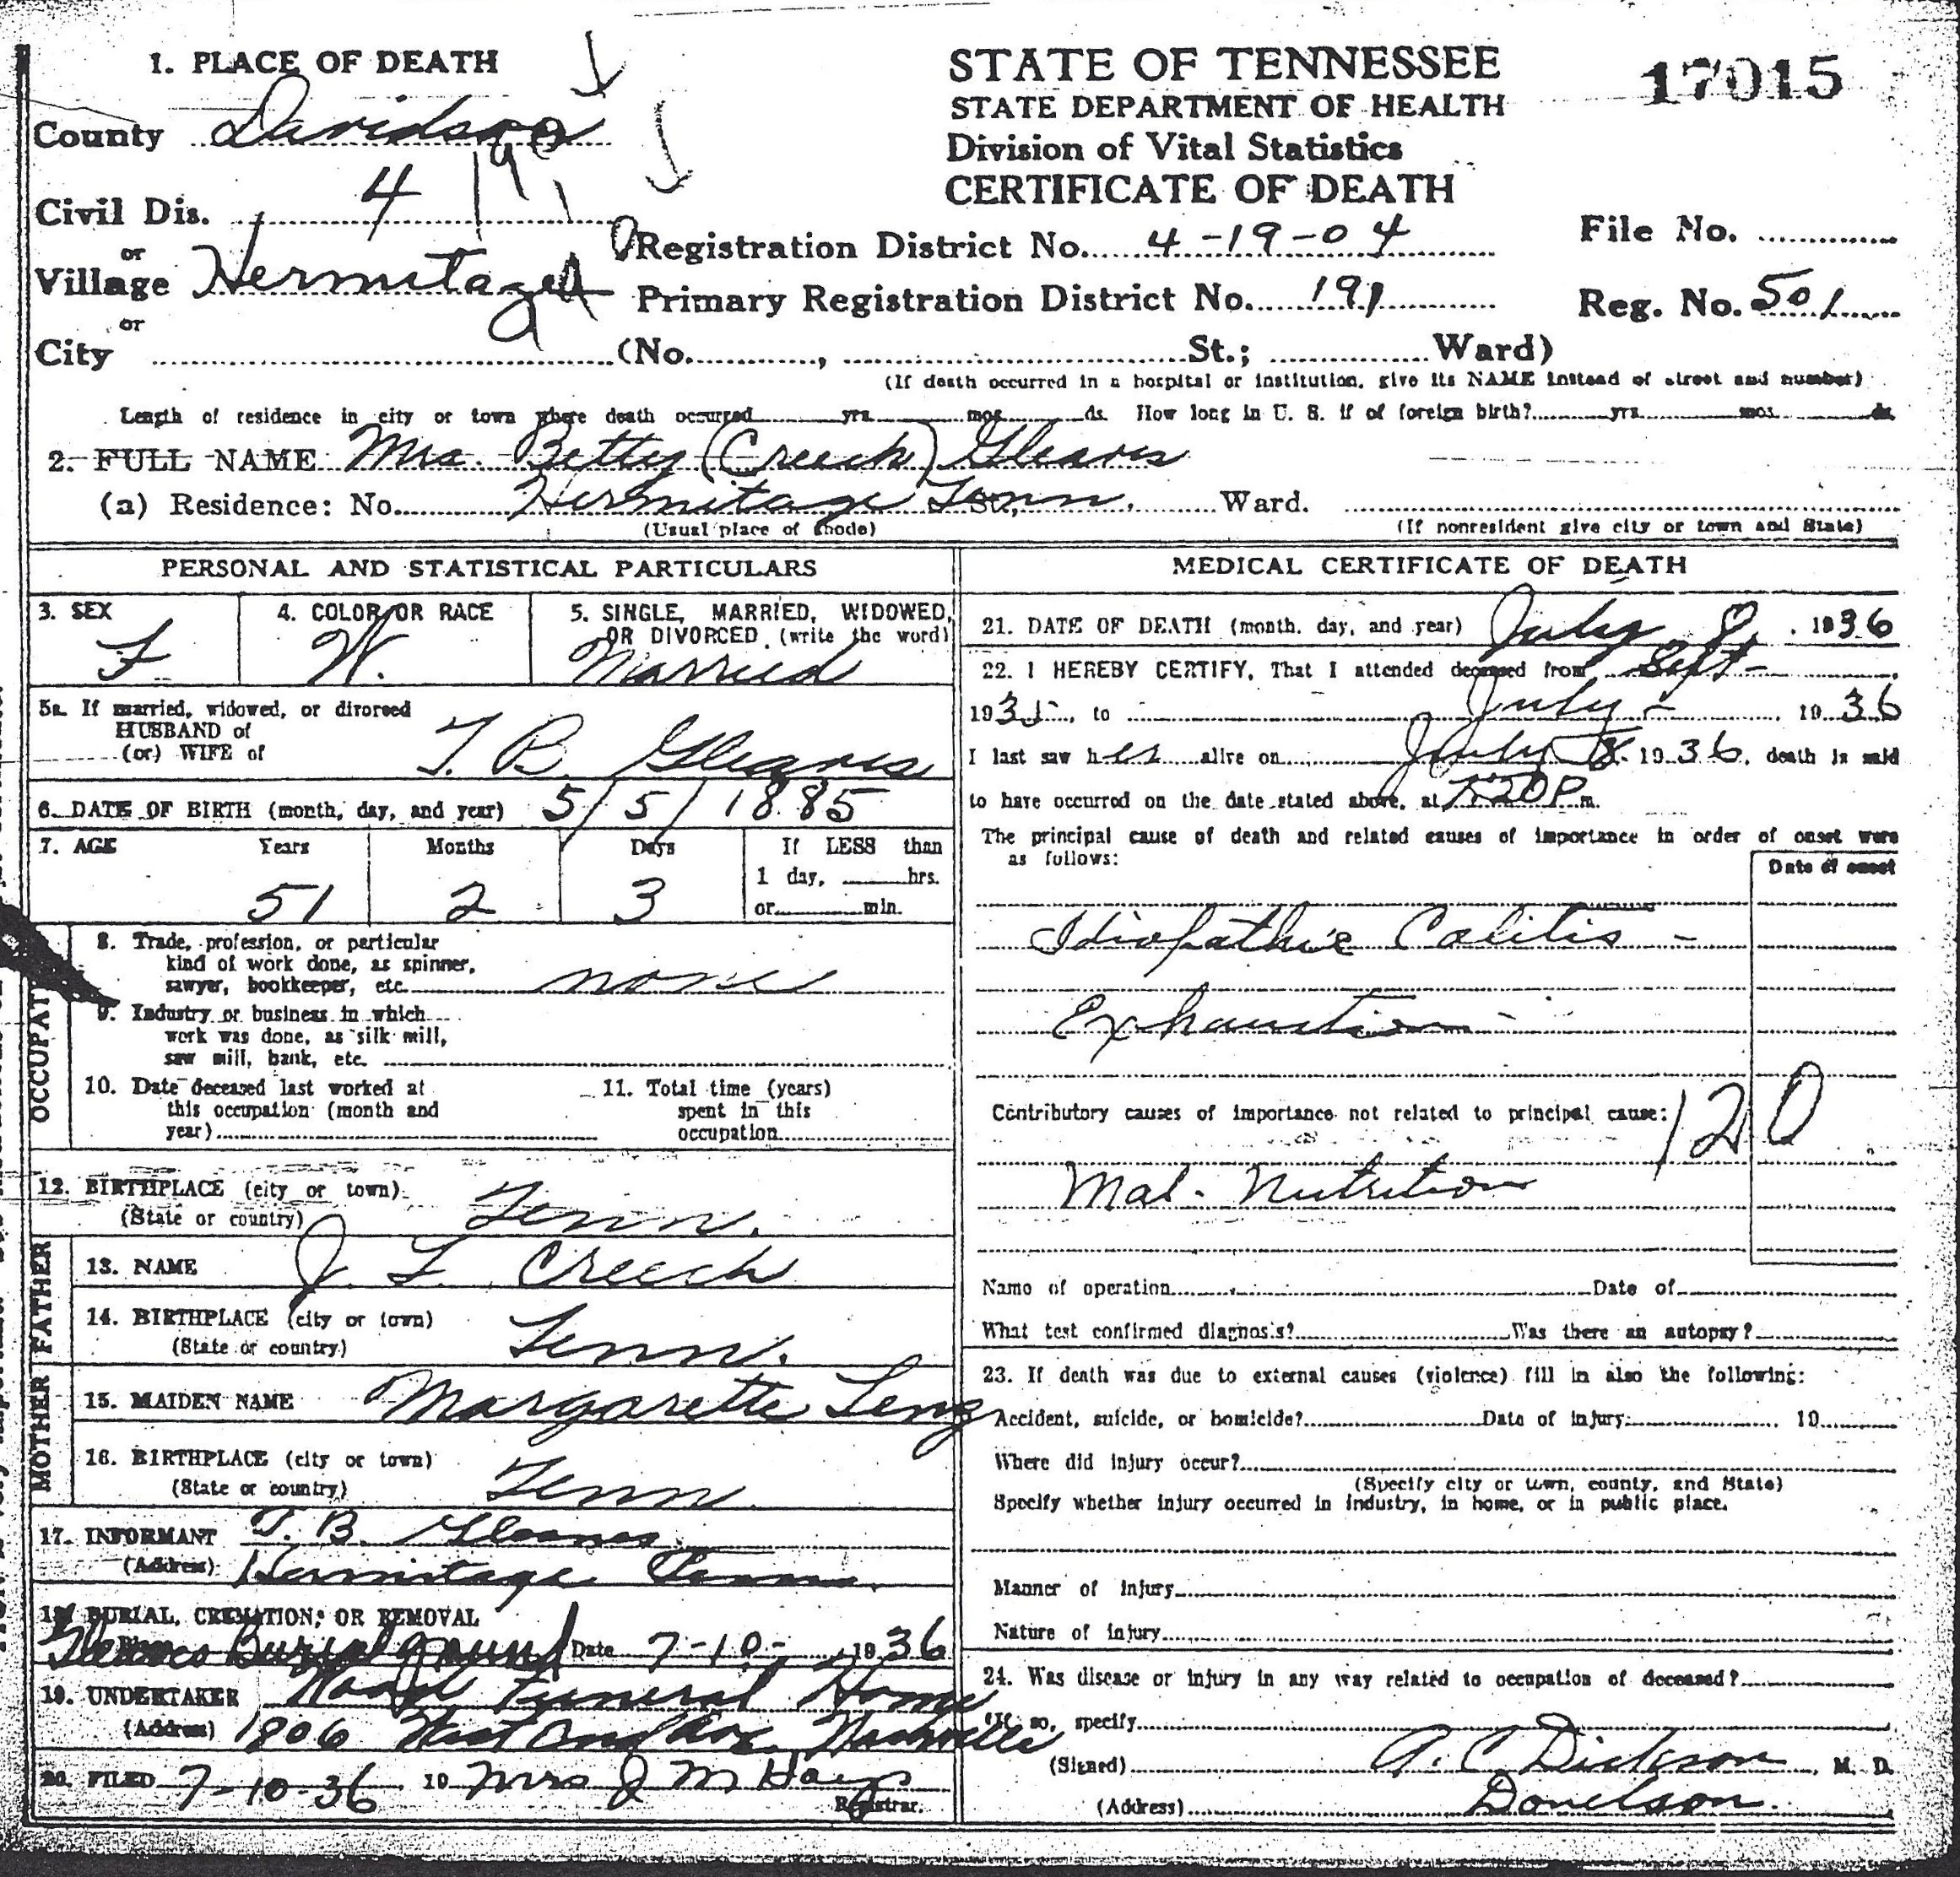 1. PLACE OF DEATH
County Davidson
Civil Dis. 4
or
Village Hermitage
or
City (No. , St.; Ward)
STATE OF TENNESSEE
STATE DEPARTMENT OF HEALTH
Division of Vital Statistics
CERTIFICATE OF DEATH
17015
Registration District No. 4-19-04 File No.
Primary Registration District No. 191 Reg. No. 501
(If death occurred in a hospital or institution, give its NAME instead of street and number)
Length of residence in city or town where death occurred yrs. mos. ds. How long in U. S. if of foreign birth? yrs. mos. ds.
2. FULL NAME Mrs. Betty (Creech) Gleaves
(a) Residence: No. Hermitage Tenn. St., Ward.
(Usual place of abode) (If nonresident give city or town and State)
PERSONAL AND STATISTICAL PARTICULARS
3. SEX 4. COLOR OR RACE 5. SINGLE, MARRIED, WIDOWED,
OR DIVORCED (write the word)
F W. Married
5a. If married, widowed, or divorced
HUSBAND of
(or) WIFE of T. B. Gleaves
6. DATE OF BIRTH (month, day, and year) 5/5/1885
7. AGE Years Months Days If LESS than
1 day, hrs.
51 2 3 or min.
OCCUPAT
8. Trade, profession, or particular
kind of work done, as spinner,
sawyer, bookkeeper, etc. none
9. Industry or business in which
work was done, as silk mill,
saw mill, bank, etc.
10. Date deceased last worked at
this occupation (month and
year)
11. Total time (years)
spent in this
occupation
12. BIRTHPLACE (city or town)
(State or country) Tenn.
FATHER
13. NAME J. L. Creech
14. BIRTHPLACE (city or town)
(State or country) Tenn.
MOTHER
15. MAIDEN NAME Margarette
16. BIRTHPLACE (city or town)
(State or country) Tenn
17. INFORMANT T. B. Gleaves
(Address) Hermitage Tenn.
18. BURIAL, CREMATION, OR REMOVAL
Gleaves Burial ground Date 7-10- 1936
19. UNDERTAKER Funeral Home
(Address) 1806 West End Ave. Nashville
20. FILED 7-10-36 19 Mrs J M Hays
Registrar.
MEDICAL CERTIFICATE OF DEATH
21. DATE OF DEATH (month, day, and year) July 8, 1936
22. I HEREBY CERTIFY, That I attended deceased from Sept-
1935, to July - 1936
I last saw her alive on July 8 1936, death is said
to have occurred on the date stated above, at m.
The principal cause of death and related causes of importance in order of onset were
as follows:
Date of onset
Idiopathic Colitis -
Exhaustion -
Contributory causes of importance not related to principal cause: 120
Mal- Nutrition
Name of operation Date of
What test confirmed diagnosis? Was there an autopsy?
23. If death was due to external causes (violence) fill in also the following:
Accident, suicide, or homicide? Date of injury 19
Where did injury occur?
(Specify city or town, county, and State)
Specify whether injury occurred in industry, in home, or in public place.
Manner of injury
Nature of injury
24. Was disease or injury in any way related to occupation of deceased?
If so, specify
(Signed) A. C. Dickson, M. D.
(Address) Donelson.